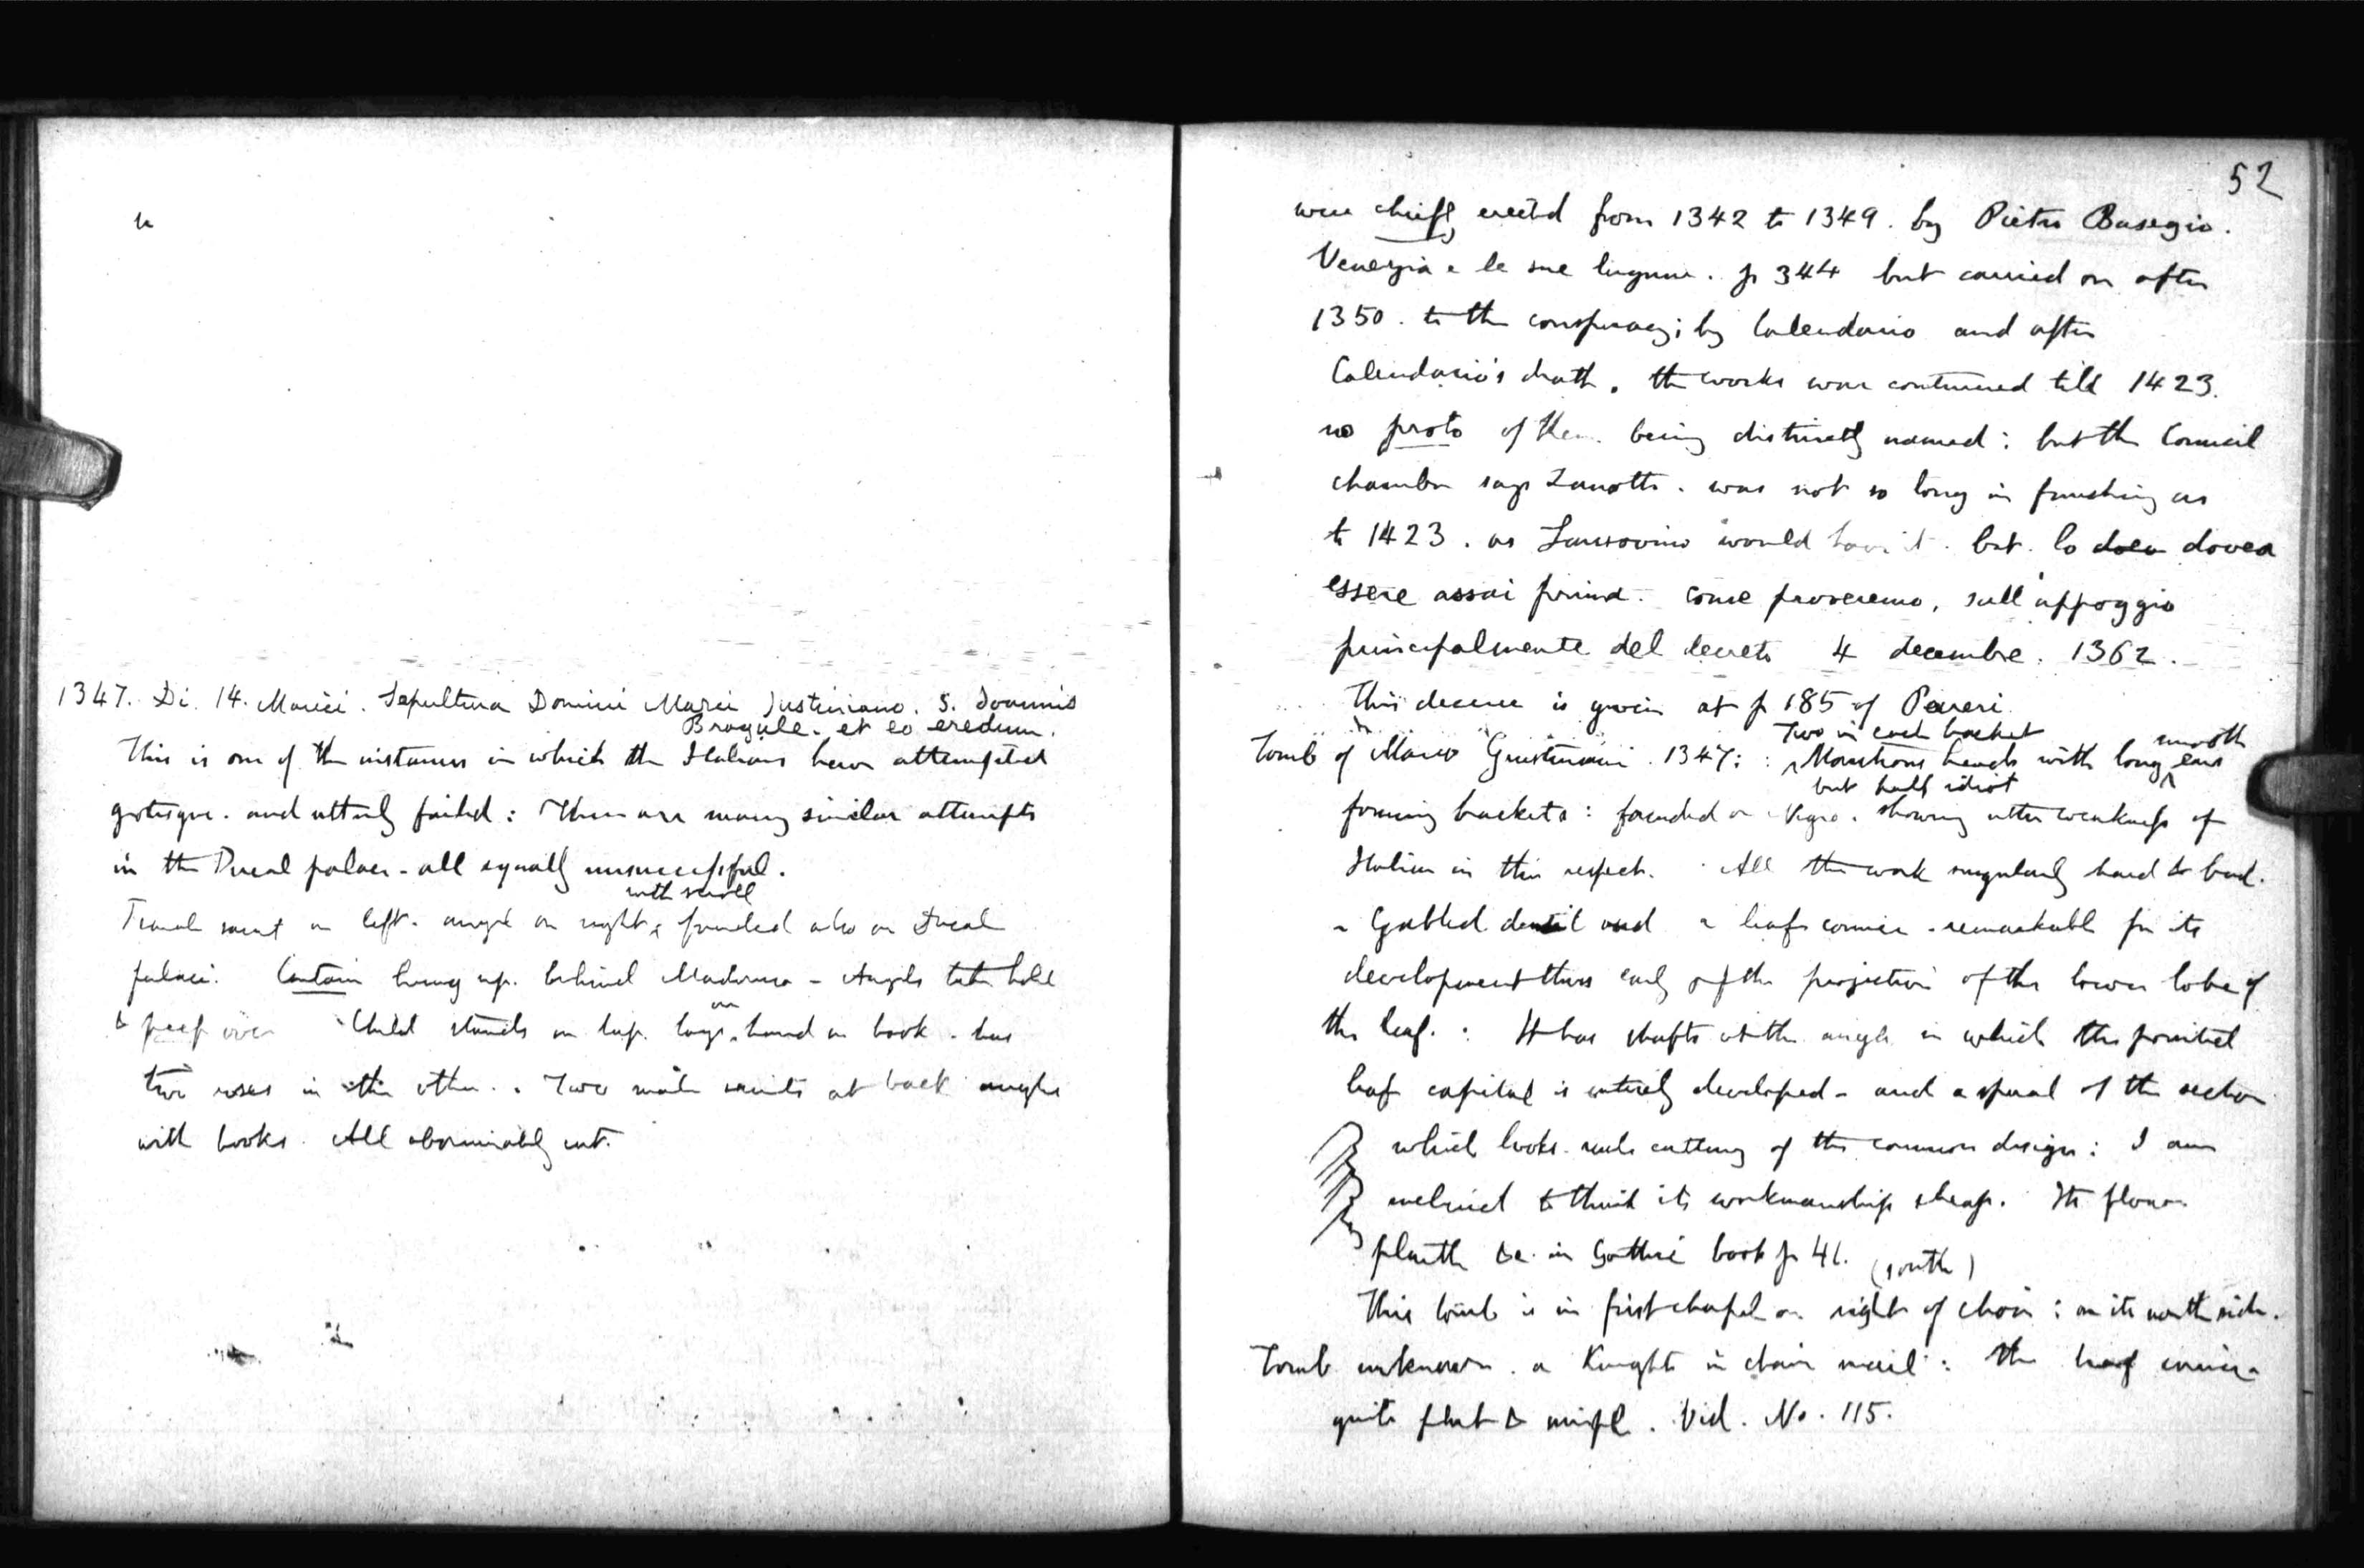 1347. Di. 14. Marcii. Sepultura Domini Marci Justiniano. S. Joannis
Bragule. et eo eredum.
This is one of the instances in which the Italians have attempted
grotesque. and utterly failed: There are many similar attempts
in the Ducal palace - all equally unsuccessful.
with scroll
saint on left. angel on right, founded also on Ducal
palace. Curtain hung up. behind Madonna - Angels take hold
& peep over Child stands on lap. lays hand on book. has
one
two roses in the other. Two male saints at back angles
with books. All abominably cut.
52
were chiefly erected from 1342 to 1349. by Pietro Basegio.
Venezia e le sue lagune. p 344 but carried on after
1350. to the conspiracy; by Calendario and after
Calendario's death. the works were continued till 1423.
no proto of them being distinctly named: but the Council
chamber says Zanotto. was not so long in finishing as
to 1423. as Sansovino would have it. but. lo dovea
essere assai prima. come proveremo, sull'appoggio
principalmente del decreto 4 decembre. 1362.
This decree is given at p 185 of
Two in each bracket
smooth
Tomb of Marco Giustiniani. 1347: Monstrous heads with long ears
but half idiot
forming brackets: founded on Negro. showing utter weakness of
Italian in this respect. All the work singularly hard & bad.
a Gabled dentil and a leaf cornice - remarkable for its
development thus early of the projection of the lower lobe of
the leaf.: It has shafts at the angle in which the pointed
leaf capital is entirely developed - and a spiral of the section
which looks rude cutting of the common design: I am
inclined to think its workmanship cheap. Its flower
plinth &c. in Gothic book p 41.
(south)
This tomb is in first chapel on right of choir: on its north side.
Tomb unknown. a Knight in chain mail: the leaf cornice
quite flat & simple. Vid. No. 115.